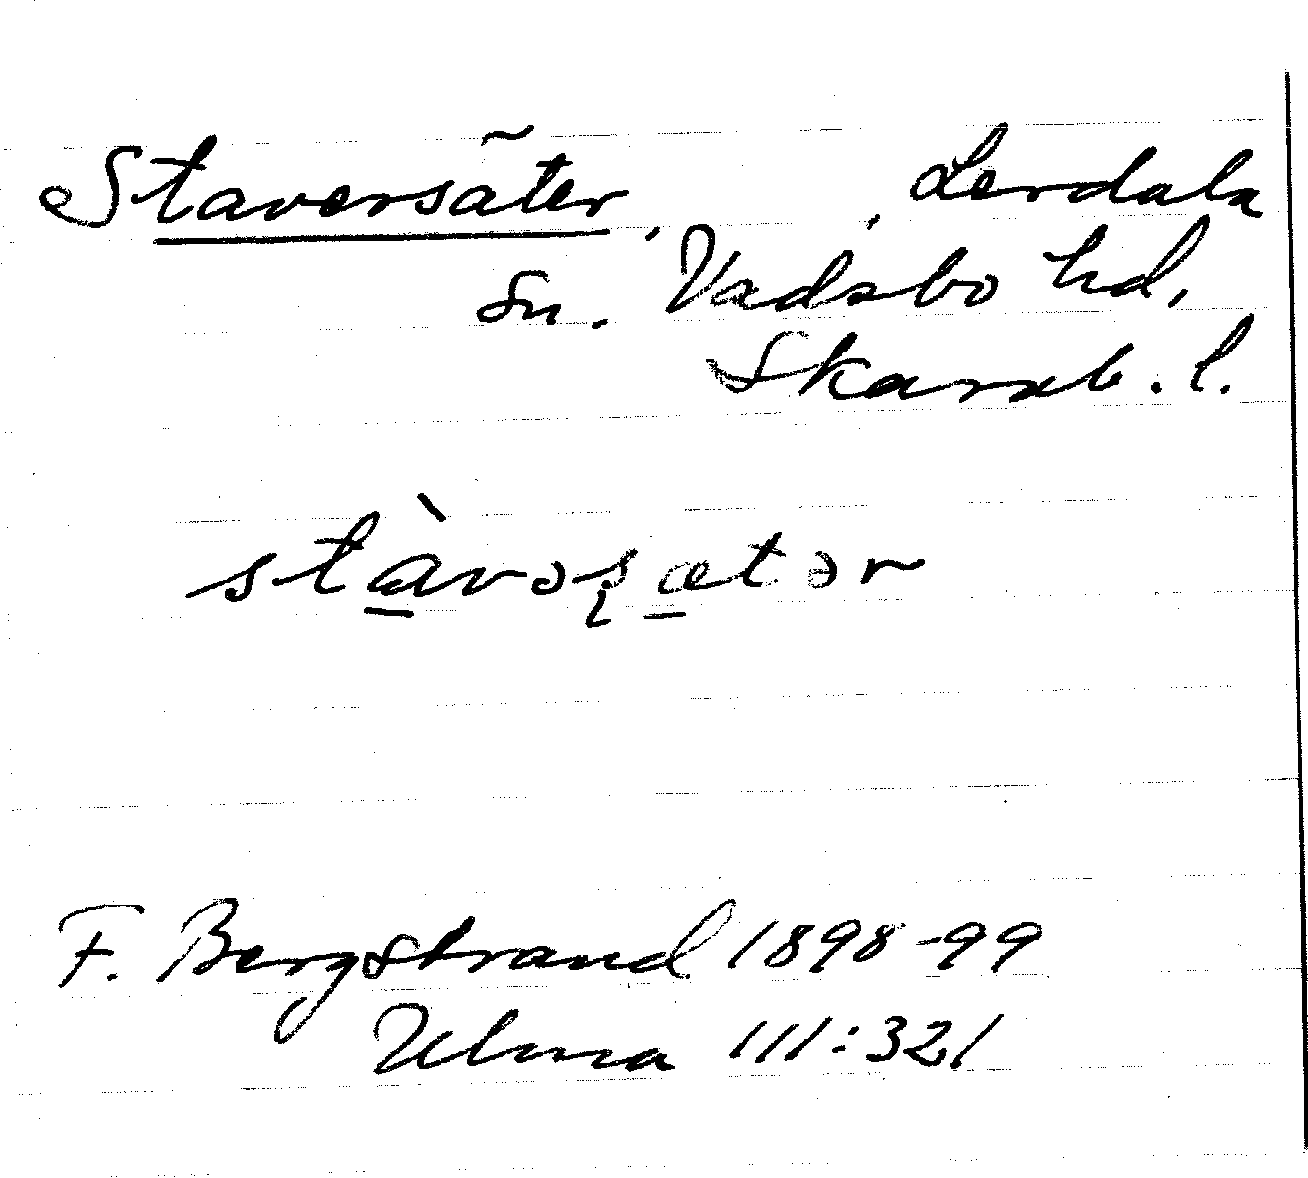 Staversäter, Lerdala
sn. Vadsbo hd,
Skarab. l.
stàvəʂætər
F. Bergstrand 1898-99
Ulma 111:321